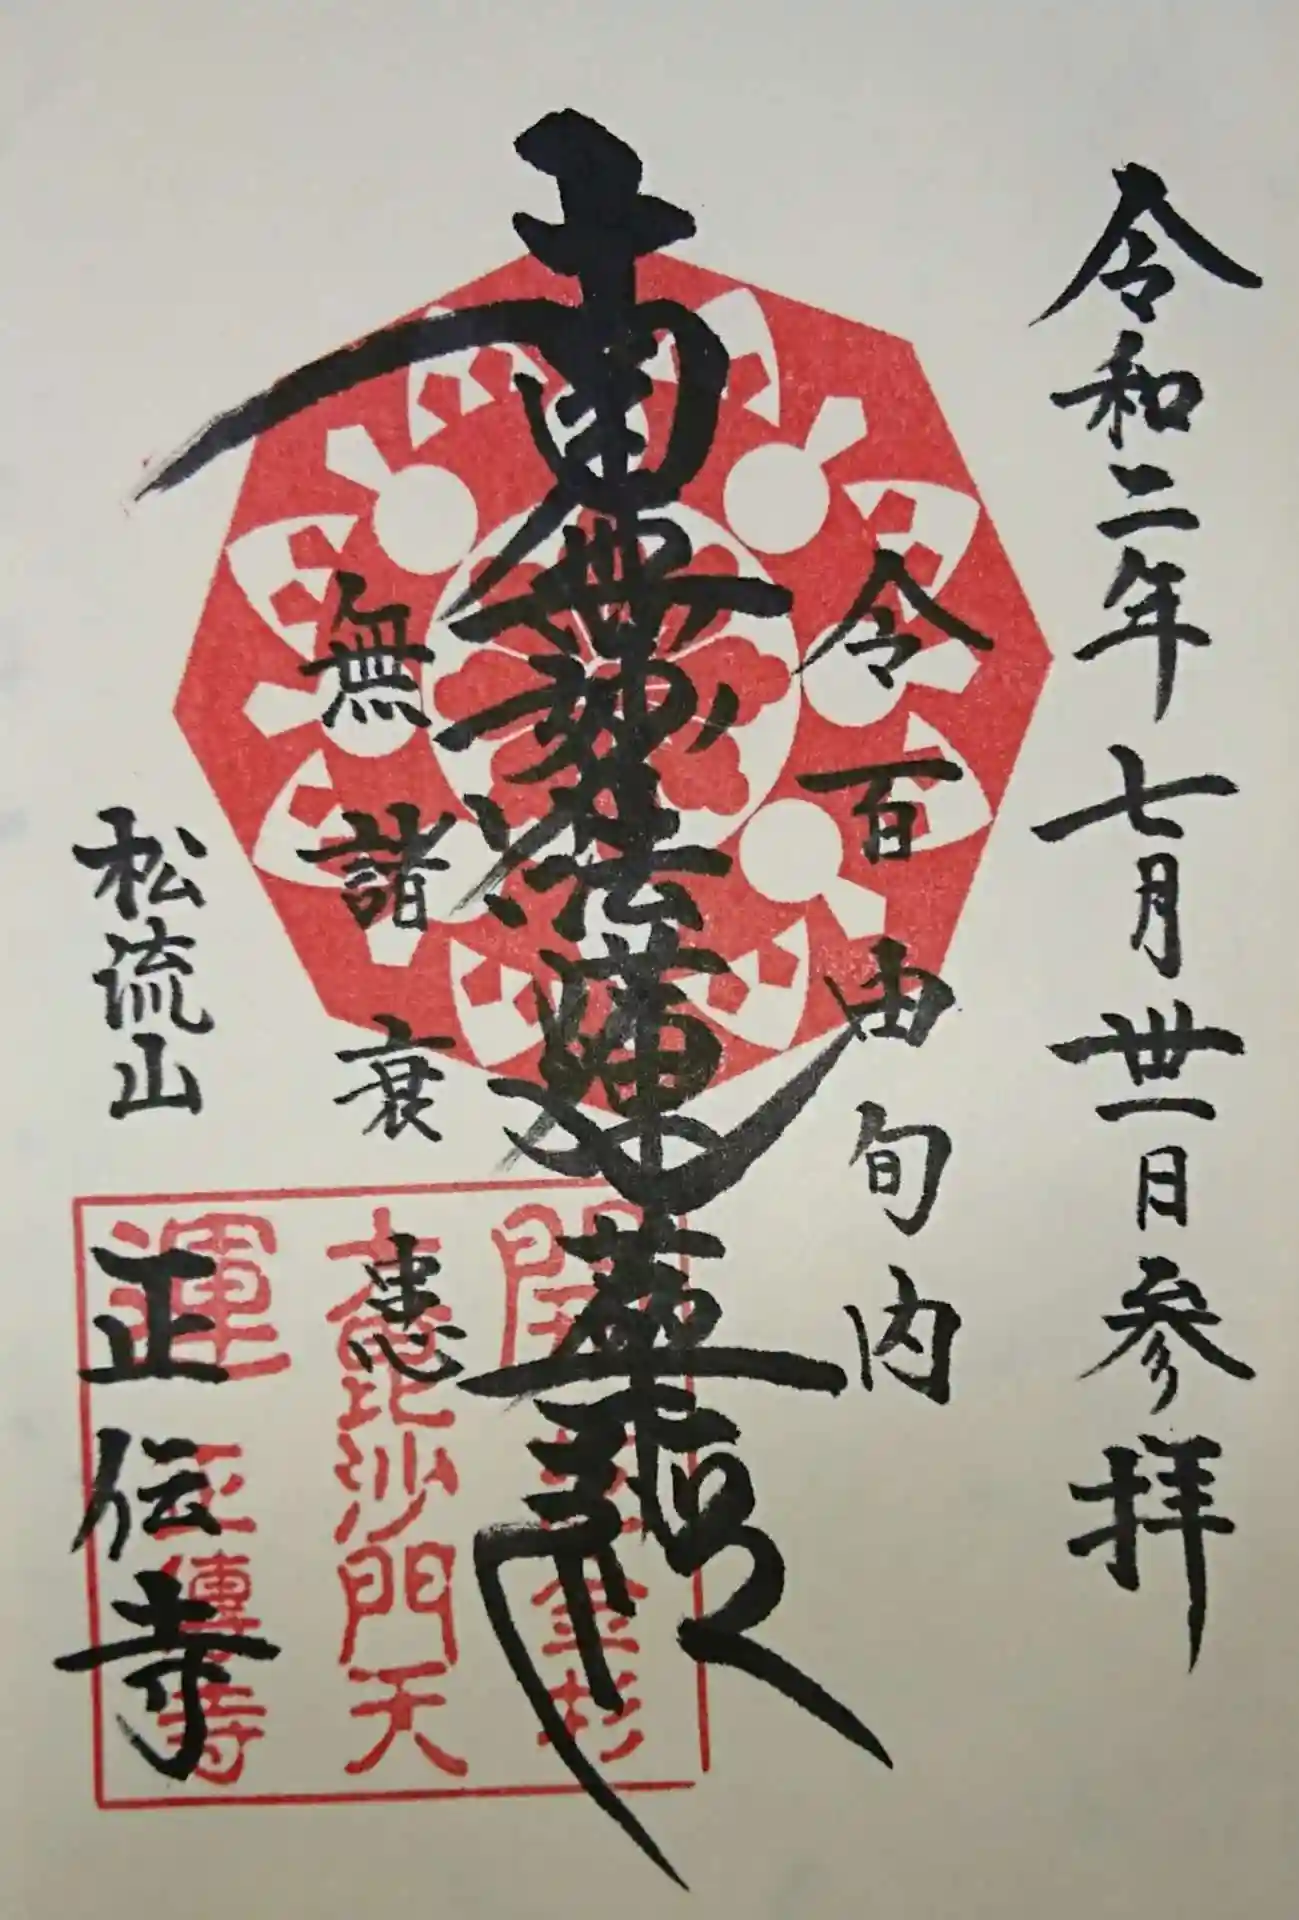 令和二年七月丗一日参拝
令百由旬内
南無妙法蓮華経
無諸衰患
松流山
正伝寺
開
運
毘沙門天
金杉
正傳寺